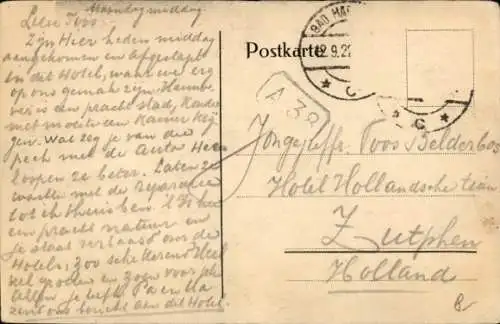 Maandagmiddag.
Lieve Toos.
Zijn Hier heden middag
aangekomen en afgestapt
in dit Hotel, waar we erg
op ons gemak zijn. Hanno
ver is een prachtstad,
met moeite een Kamer krij
gen. Wat zeg je van die
pech met de auto Hier
loopen ze beter. Laten ze
wachten met de reparatie
tot ik thuis ben. 't Is hier
een pracht natuur en
je staat verbaasd over de
Hotels, zoo schitterend. Heel
veel groeten en zoen voor je
allen je liefh. Pa en Ma
zend ons bericht aan dit Hotel.
Postkarte
BAD HA
12.9.22
* C *
* C *
A 39
Jongejuffr. Toos Belderbos
Hotel Hollandsche tuin
Zutphen
Holland